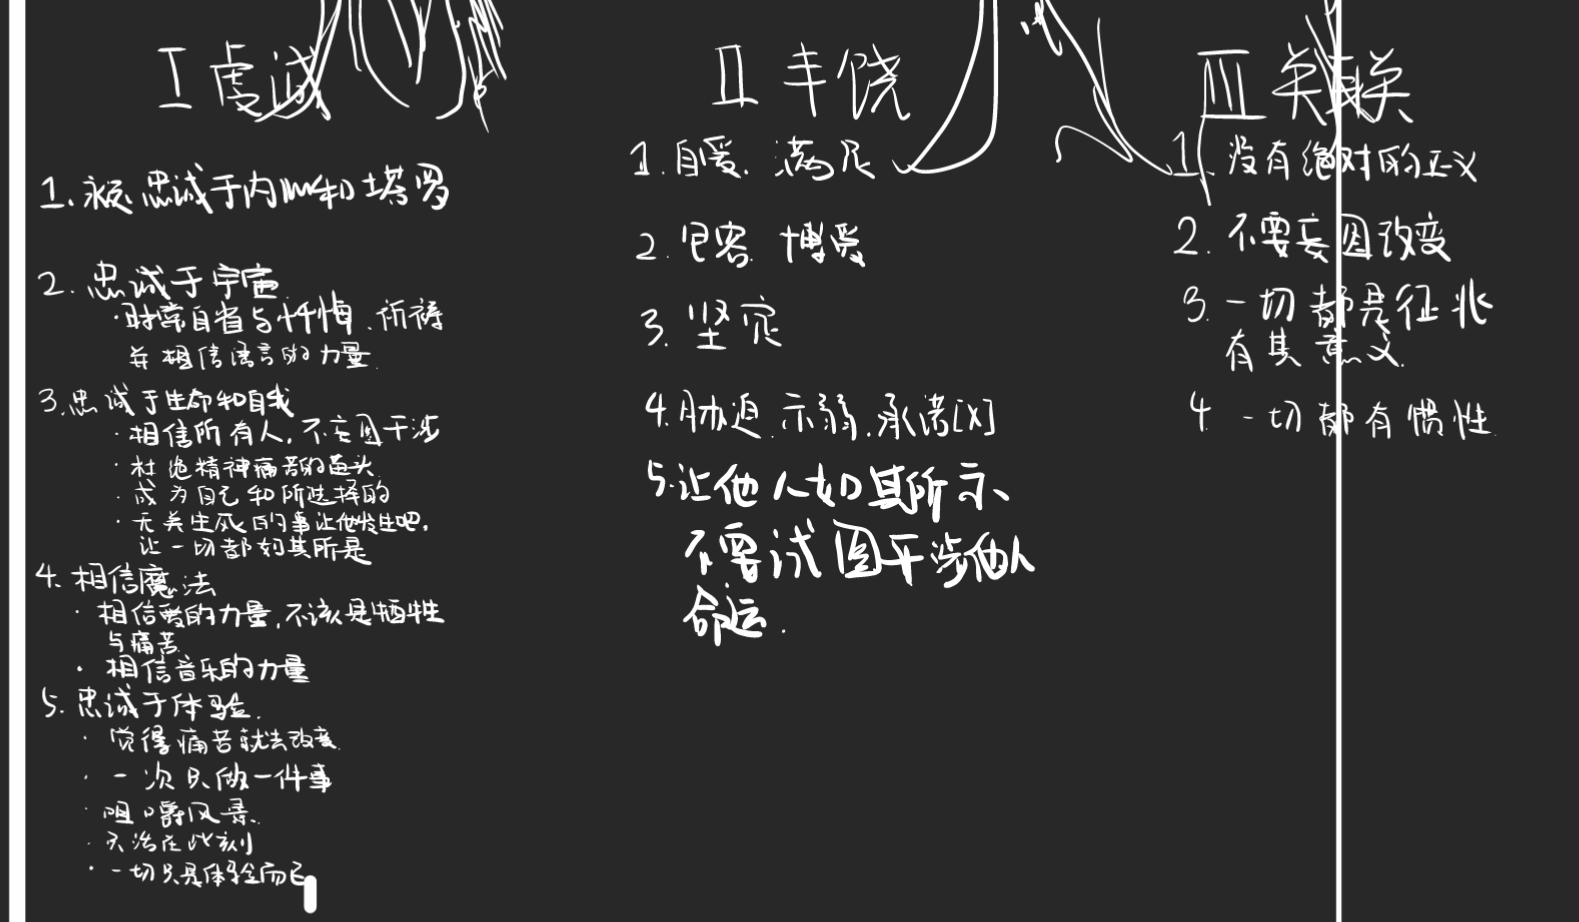 I 虔诚
1. 永远忠诚于内心和塔罗
2. 忠诚于宇宙
·时常自省与忏悔、祈祷
并相信语言的力量.
3. 忠诚于生命和自我
·相信所有人,不妄图干涉
·杜绝精神痛苦的苗头
·成为自己和所选择的
·无关生死的事让他发生吧,
让一切都如其所是
4. 相信魔法
·相信爱的力量,不该是牺牲
与痛苦
·相信音乐的力量
5. 忠诚于体验.
·觉得痛苦就去改变.
·一次只做一件事
·咀嚼风景.
·只活在此刻
·一切只是体验而已
II 丰饶
1. 自爱. 满足
2. 包容. 博爱
3. 坚定
4. 胁迫.示弱.承诺[X]
5. 让他人如其所示、
不要试图干涉他人
命运.
III 关联
1. 没有绝对的正义
2. 不要妄图改变
3. 一切都是征兆
有其意义.
4 一切都有惯性.